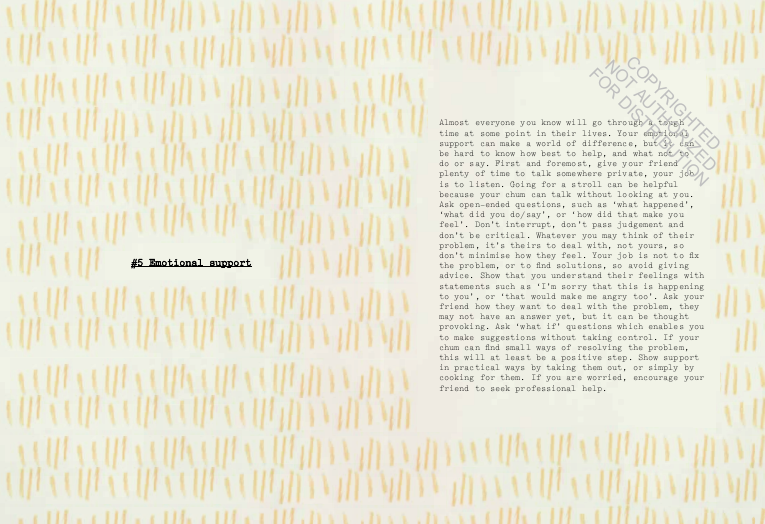 #5 Emotional support
COPYRIGHTED
NOT AUTHORIZED
FOR DISTRIBUTION
Almost everyone you know will go through a tough
time at some point in their lives. Your emotional
support can make a world of difference, but it can
be hard to know how best to help, and what not to
do or say. First and foremost, give your friend
plenty of time to talk somewhere private, your job
is to listen. Going for a stroll can be helpful
because your chum can talk without looking at you.
Ask open-ended questions, such as ‘what happened’,
‘what did you do/say’, or ‘how did that make you
feel’. Don’t interrupt, don’t pass judgement and
don’t be critical. Whatever you may think of their
problem, it’s theirs to deal with, not yours, so
don’t minimise how they feel. Your job is not to fix
the problem, or to find solutions, so avoid giving
advice. Show that you understand their feelings with
statements such as ‘I’m sorry that this is happening
to you’, or ‘that would make me angry too’. Ask your
friend how they want to deal with the problem, they
may not have an answer yet, but it can be thought
provoking. Ask ‘what if’ questions which enables you
to make suggestions without taking control. If your
chum can find small ways of resolving the problem,
this will at least be a positive step. Show support
in practical ways by taking them out, or simply by
cooking for them. If you are worried, encourage your
friend to seek professional help.